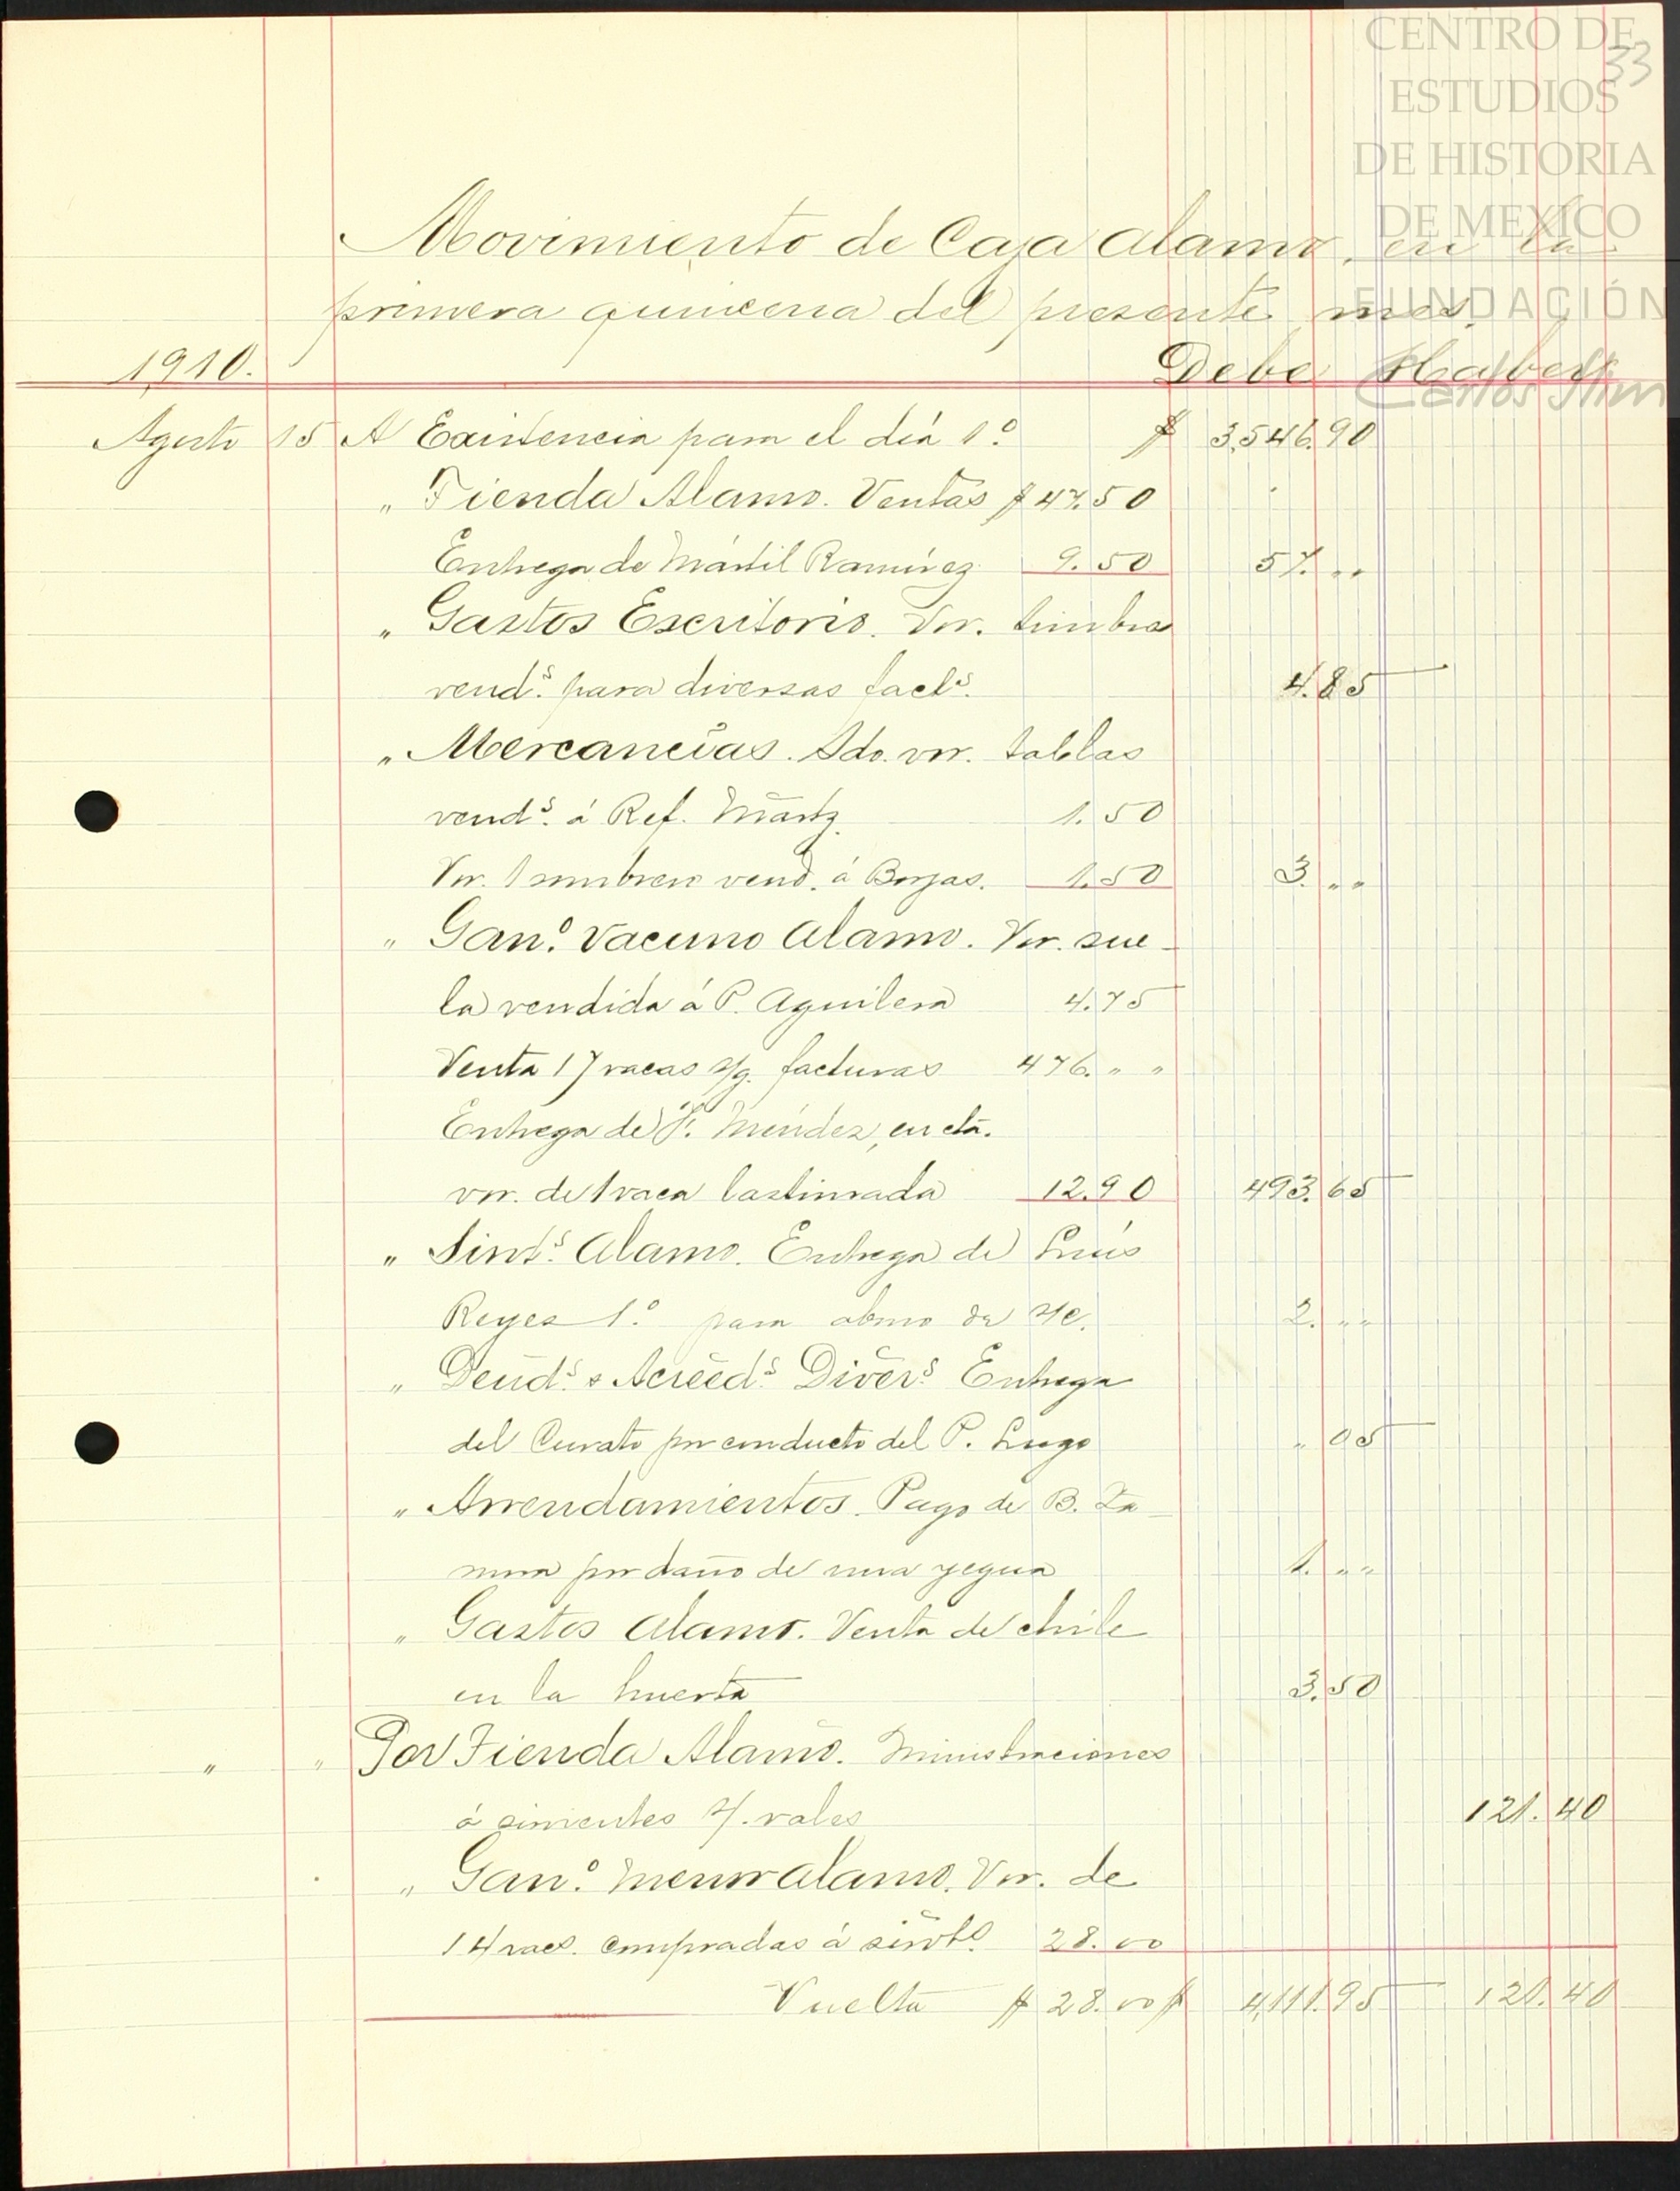 CENTRO DE
33
ESTUDIOS
DE HISTORIA
DE MEXICO
FUNDACIÓN
Carlos Slim
Movimiento de Caja Alamo, en la
primera quincena del presente mes.
1910. Debe Haber
Agosto 15 A Existencia para el día 1º $ 3,546.90
" Tienda Alamo. Ventas $ 47.50
Entrega de Mártil Ramírez 9.50 57. " "
" Gastos Escritorio. Vor. timbres
vends. para diversas facts. 4.85
" Mercancías. Sdo. vor. tablas
vends. á Ref. Martz. 1.50
Vor. 1 sombrero vend. á Borjas. 1.50 3. " "
" Gano. Vacuno Alamo. Vor. sue-
la vendida á P. Aguilera 4.75
Venta 17 vacas s/g. facturas 476. " "
Entrega de F. Méndez, en cta.
vor. de 1 vaca lastimada 12.90 493.65
" Sirvts. Alamo. Entrega de Luis
Reyes 1º para abono de s/c. 2. " "
" Deuds. & Acreeds. Divers. Entrega
del Curato por conducto del P. Lugo " 05
" Arrendamientos. Pago de B. Za-
mora por daño de una yegua 1. " "
" Gastos Alamo. Venta de chile
en la huerta 3.50
" " Por Tienda Alamo. Ministraciones
á sirvientes s/. vales 121.40
" Gano. Menor Alamo. Vor. de
14 racs. compradas á sirvts. 28.00
Vuelta $ 28.00 $ 4,111.95 121.40